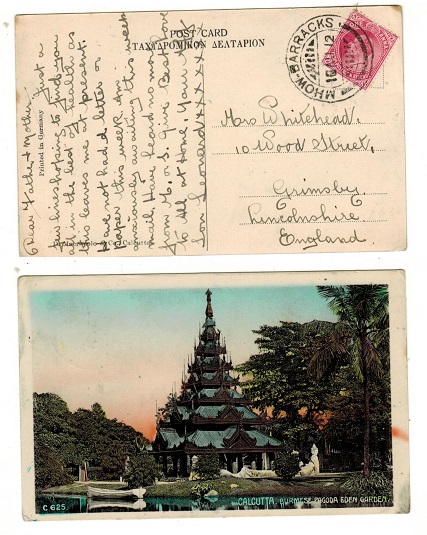 POST CARD
ΤΑΧΥΔΡΟΜΙΚΟΝ ΔΕΛΤΑΡΙΟΝ
MHOW-BARRACKS
Printed in Germany
Dear Father & Mother. Just a
few lines hoping to find you
all in the best of health as
this leaves me at present.
Have not had letter or
paper this week. Am
anxiously awaiting this week
mail. Have heard no more
from Mr S. Give Best love
to All at Home. Your
Son Leonard XXXXX
Mrs Whitehead.
10 Wood Street,
Grimsby.
Lincolnshire
England.
& Co., Calcutta.
CALCUTTA, BURMESE PAGODA EDEN GARDEN.
C 625.